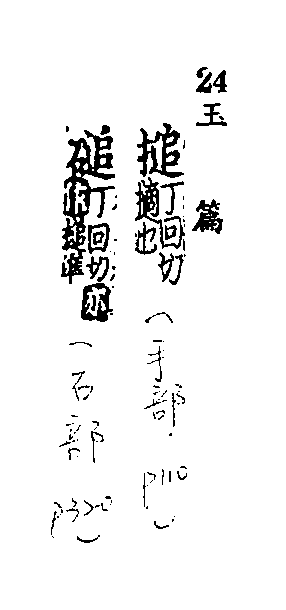 24玉篇
搥丁回切摘也(手部.P110)
磓丁回切亦(石部P320)